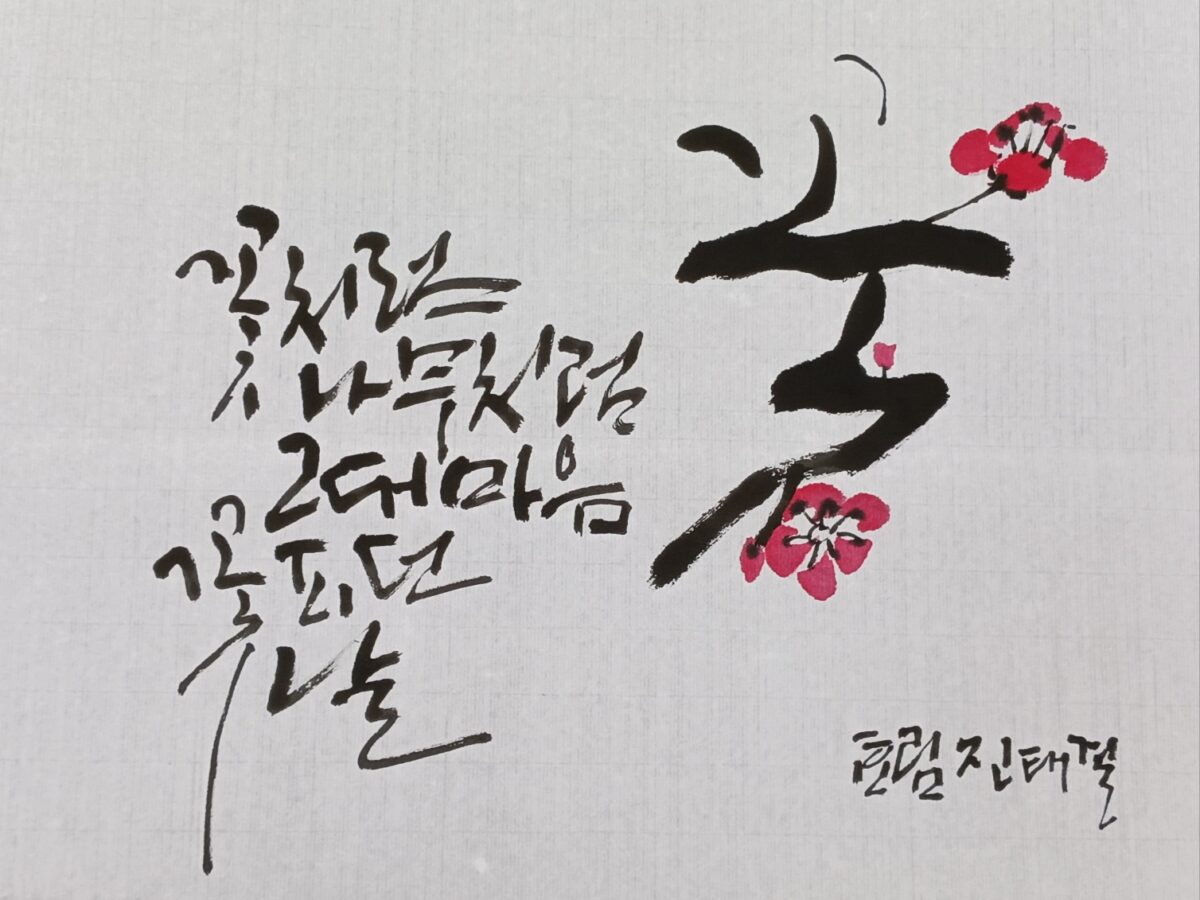 꽃처럼
나무처럼
그대 마음
꽃피던
날
꽃
효림 진태걸